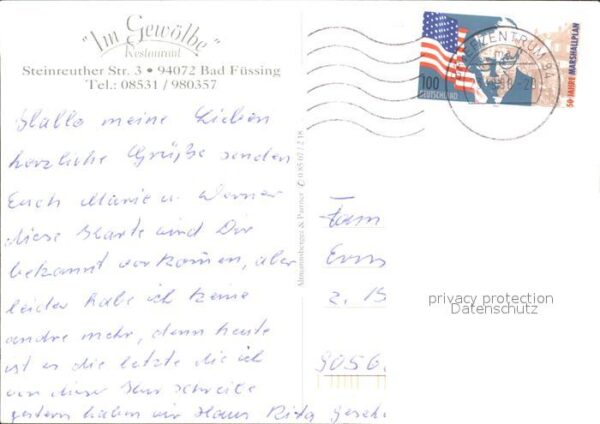 "Im Gewölbe"
Restaurant
Steinreuther Str. 3 • 94072 Bad Füssing
Tel.: 08531 / 980357
Hallo meine Lieben
herzliche Grüße senden
Euch Marie u. Werner
diese Karte wird Dir
bekannt vorkommen, aber
leider habe ich keine
andre mehr, denn heute
ist es die letzte die ich
von dieser Kur schreibe
gestern haben wir Haus Rita gesch.
Ahrmannsberger & Partner
100
DEUTSCHLAND
50 JAHRE MARSHALLPLAN
BRIEFZENTRUM 94
Fam
z. B
9050.
privacy protection
Datenschutz